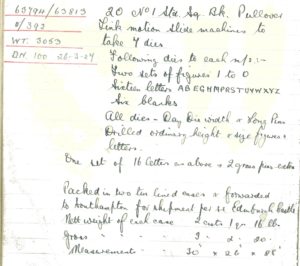 63794/63813
0/393
WT. 3053
DN 100 28-3-27
20 No 1 Std. Sq. Bk. Pullover
Link motion slide machines to
take 4 dies
Following dies to each m/c :-
Two sets of figures 1 to 0
Sixteen letters ABEGHMPRSTUVWXYZ
Six blanks
All dies - Day Die width & Long Pins
Drilled ordinary height & size figures &
letters.
One set of 16 letters as above & 2 gross pins extra
Packed in two tin lined cases & forwarded
to Southampton for shipment per SS Edinburgh Castle
Nett weight of each case 2 cwts 1 qr 16 lb.
Gross 3 " 2 " 20 "
Measurements - 30" x 26 x 28"